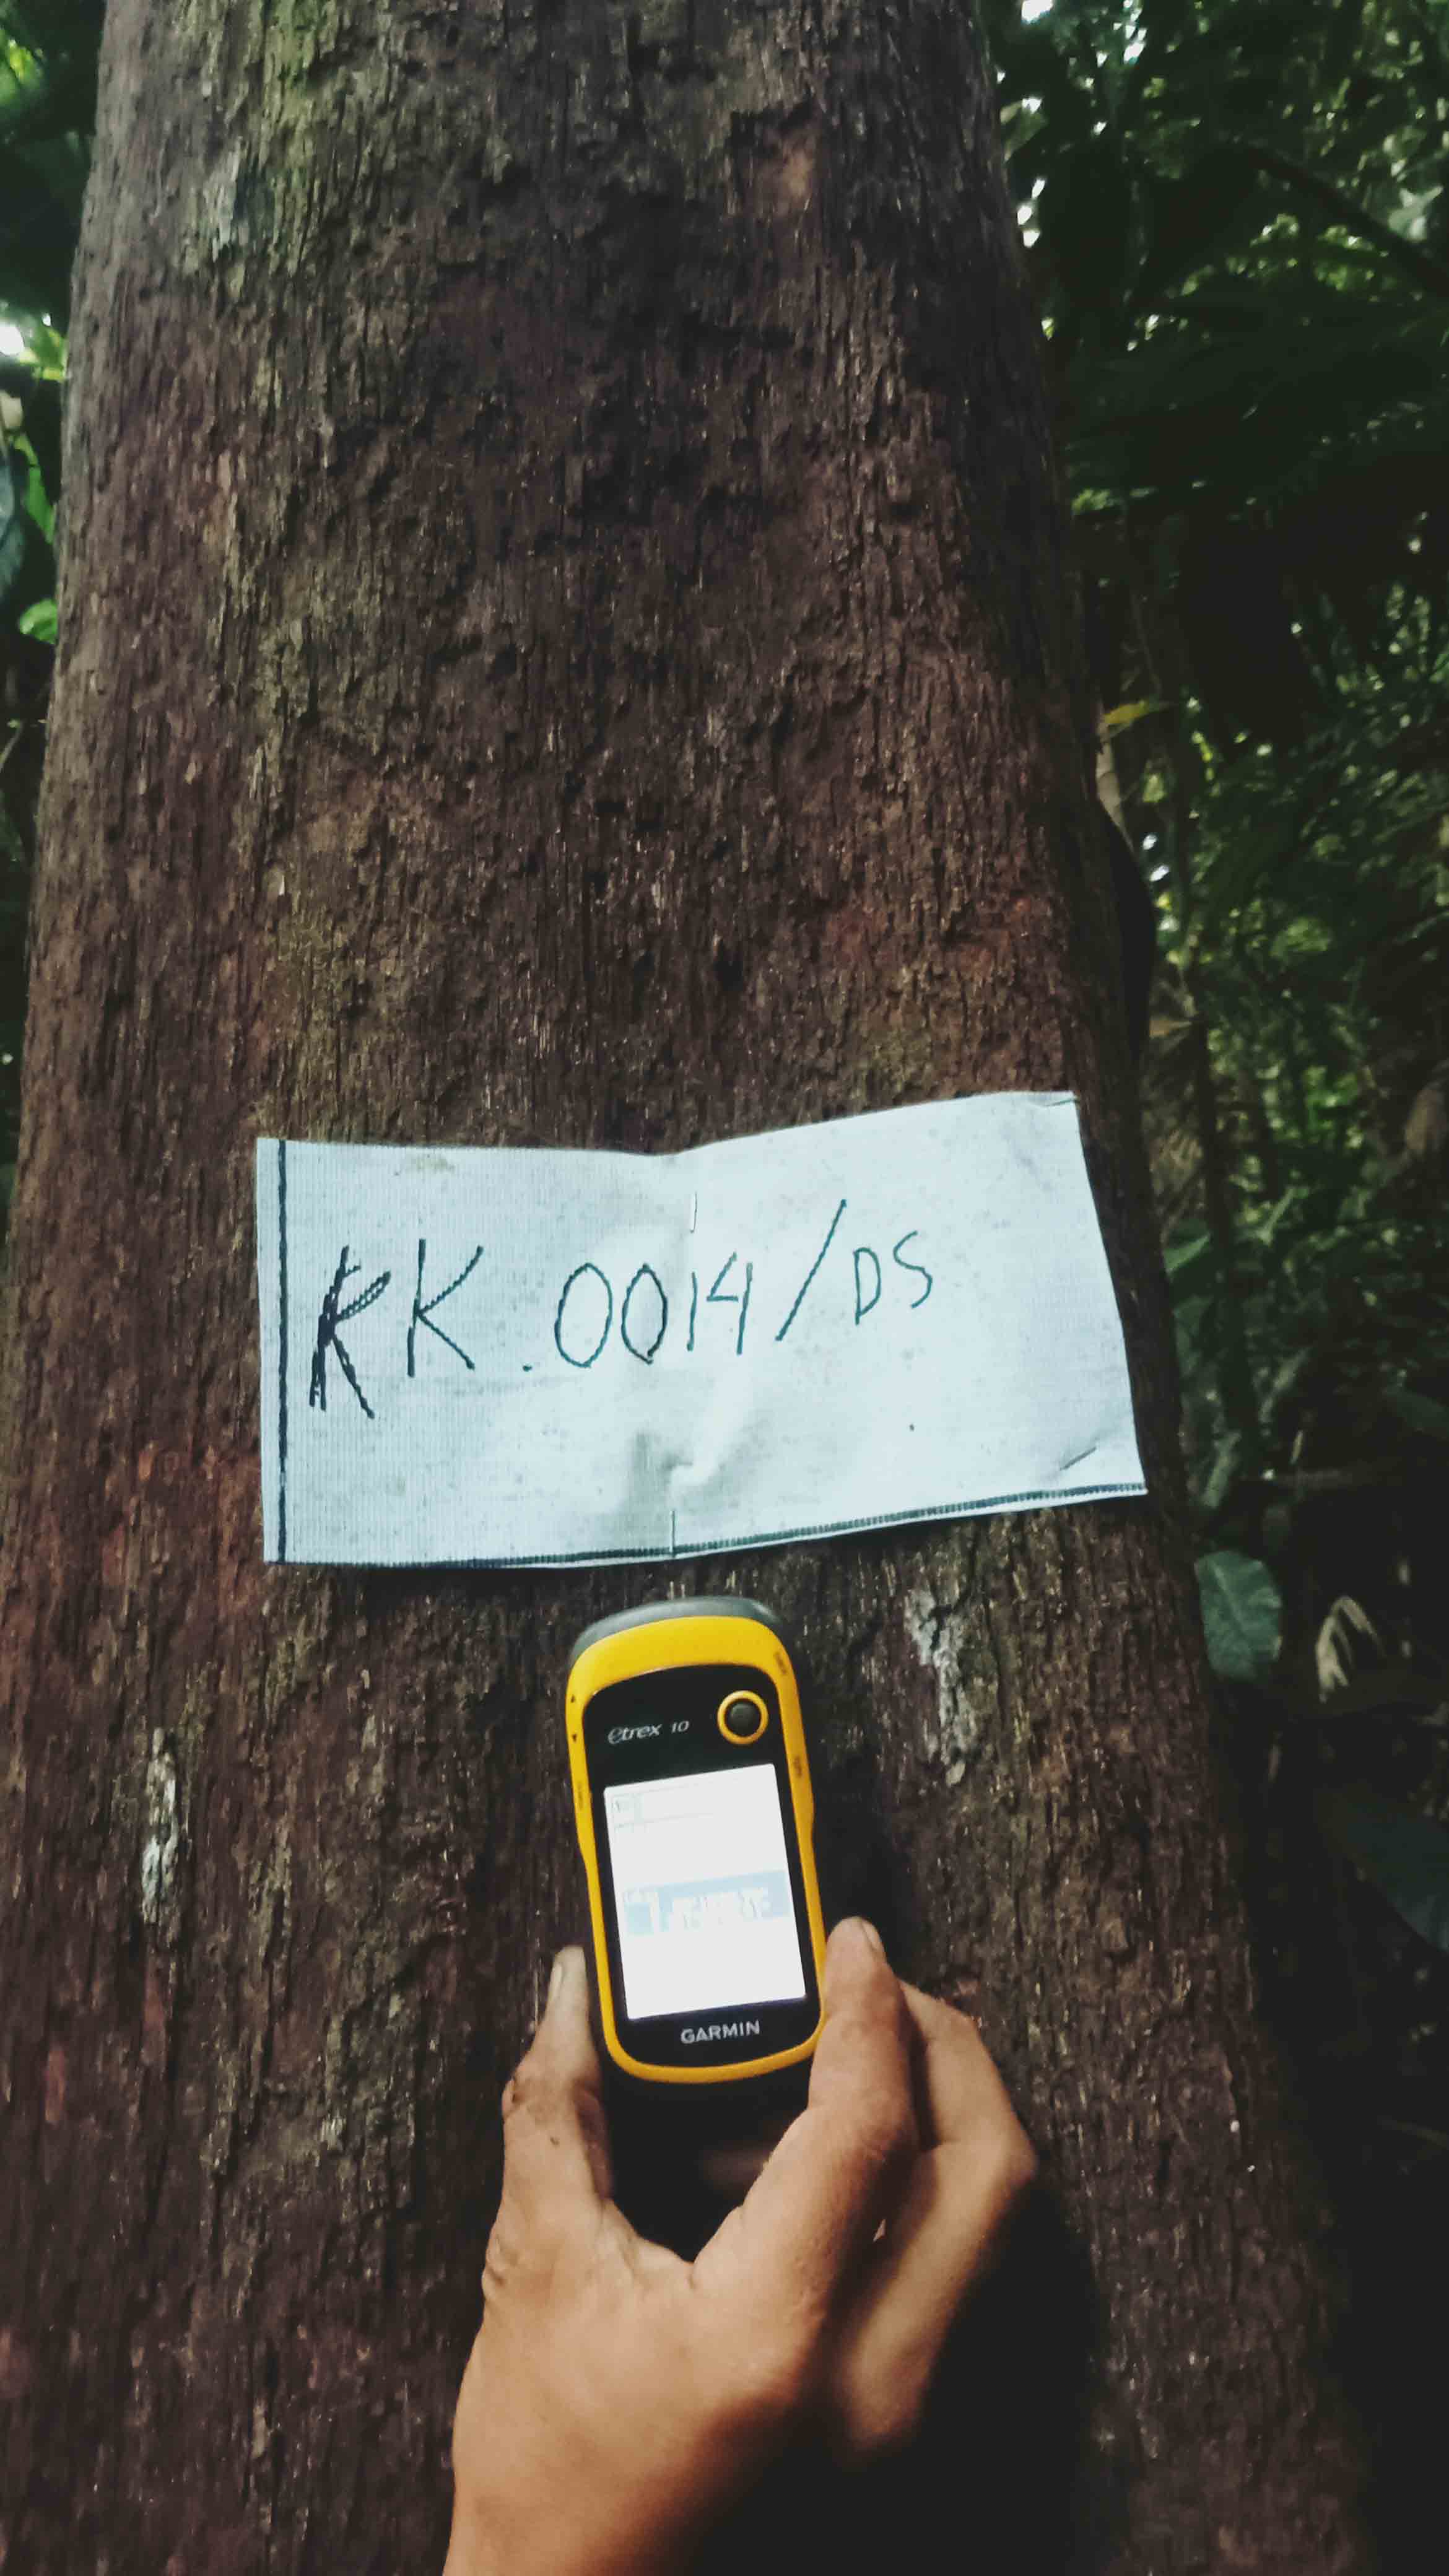 RK.0014/DS
etrex 10
GARMIN